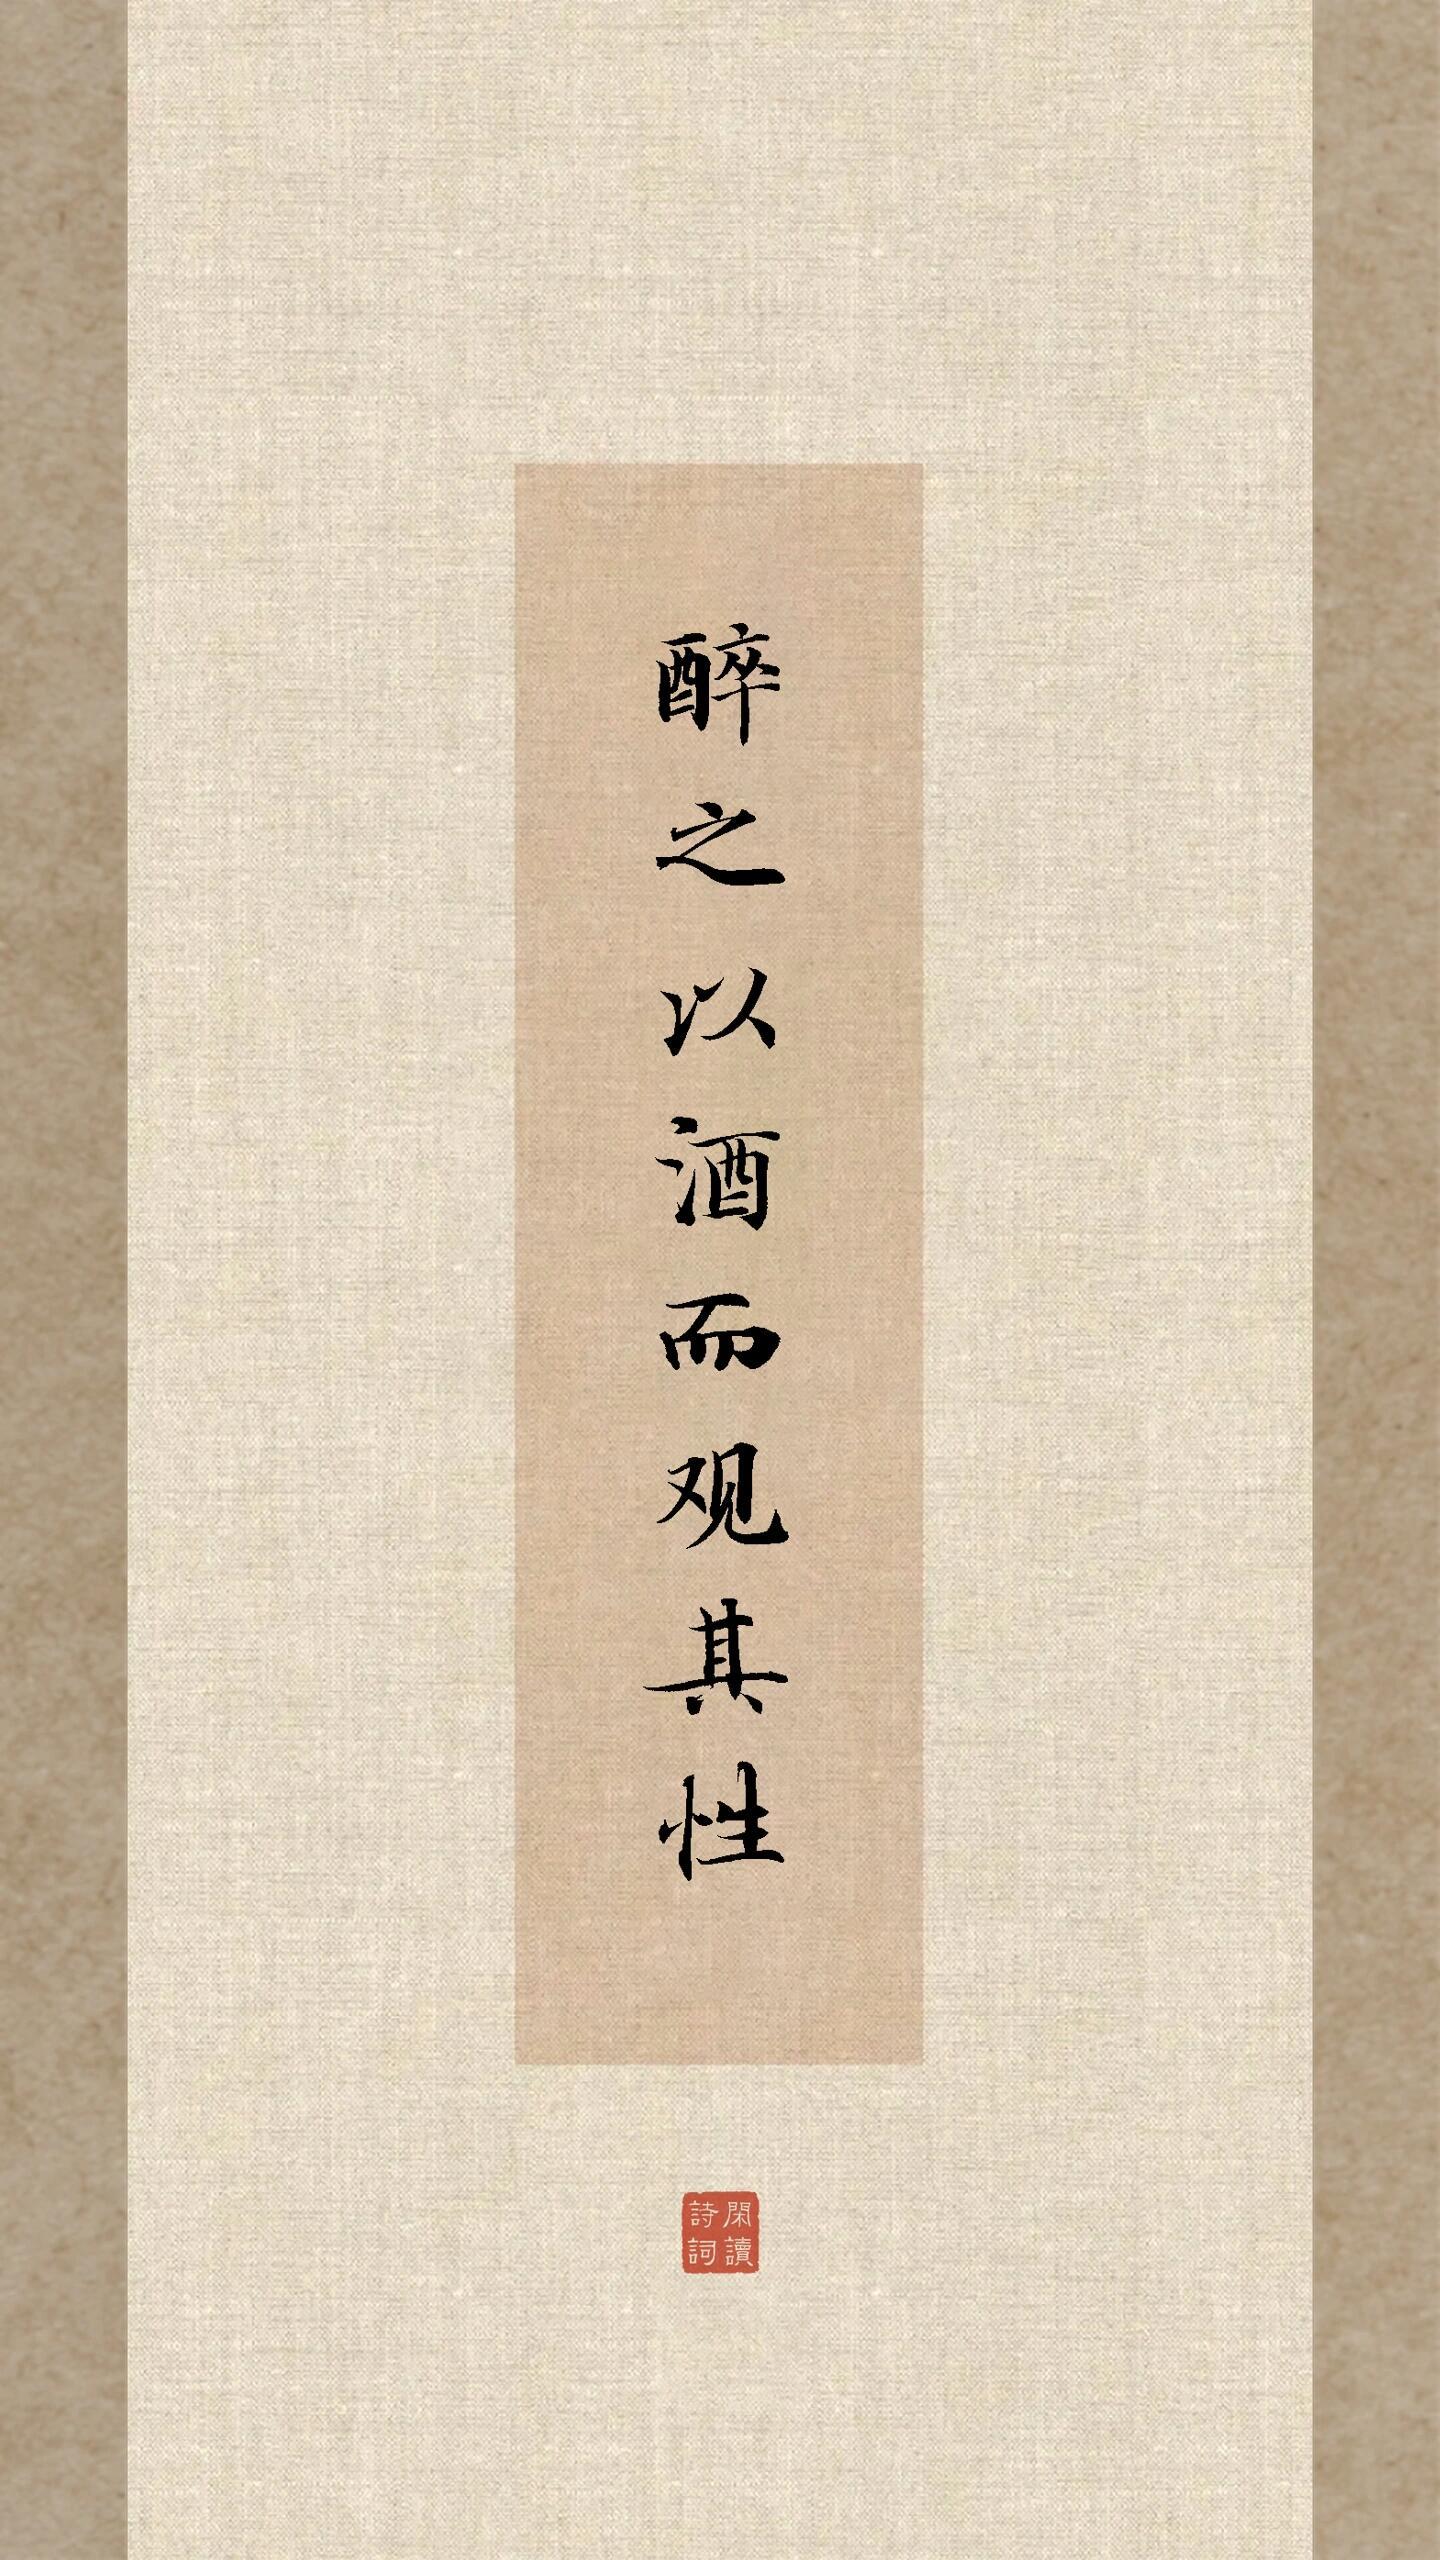 醉之以酒而观其性
閑讀
詩詞